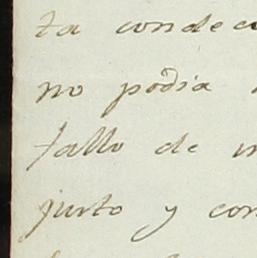 ta condec
no podia
fallo de
justo y con